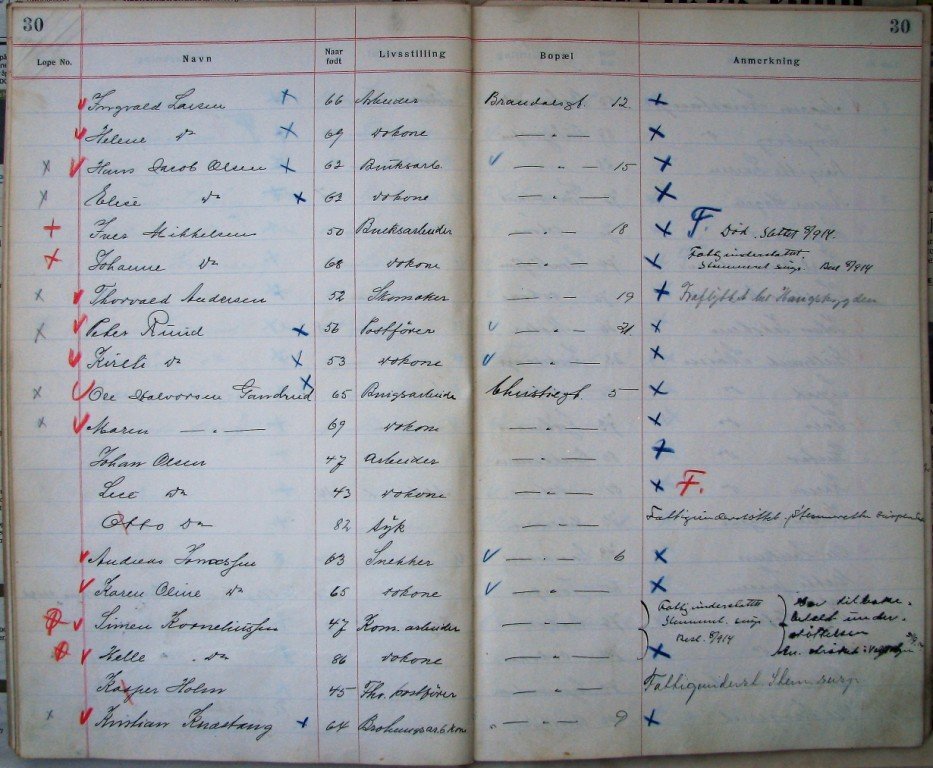 30 30
Løpe No. Navn Naar født Livsstilling Bopæl Anmerkning
Ingvald Larsen 66 Arbeider Brandalsgt. 12
Helene Do 69 Do kone — " —
Hans Jacob Olsen 62 Bruksarb. — " — 15
Elise Do 63 Do kone — " —
Iver Mikkelsen 50 Bruksarbeider — " — 18 F. Død. Slettet 8/914.
Johanne Do 68 Do kone — " — Fattigunderstøttet
Stemmeret susp. Besl. 8/914
Thorvald Andersen 52 Skomaker — " — 19 Fraflyttet
Peter Ruud 56 Postfører — " — 21
Kirsti Do 53 Do kone — " —
Ole Halvorsen Gandrud 65 Brugsarbeide Christiegt. 5
Maren — " — 69 Do kone — " —
Johan Olsen 47 Arbeider — " —
Lise Do 43 Do kone — " — F.
Otto Do 82 Syk — " — Fattigunderstøttet Stemmeretten
Andreas 63 Snekker — " — 6
Karen Oline Do 65 Do kone — " —
Simen Korneliussen 47 Kom. arbeider — " — Fattigunderstøttet
Stemmeret susp.
Besl. 8/914
Har tilbake-
betalt under-
støttelsen
Helle Do 86 Do kone — " —
Kasper Holm 45 Fhv. postfører — " — Fattigunderst. Stem susp
Kristian Knastang 64 — " — 9